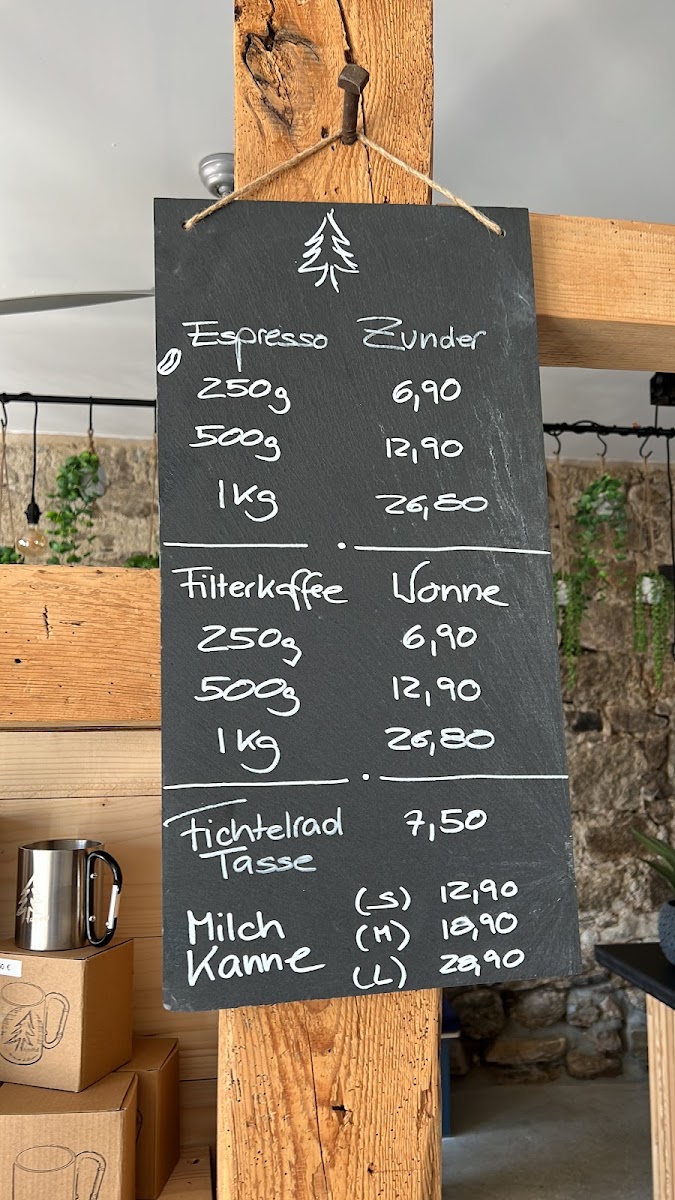 Espresso Zunder
250g 6,90
500g 12,90
1kg 26,80
Filterkaffee Wonne
250g 6,90
500g 12,90
1kg 26,80
Fichtelrad 7,50
Tasse
(S) 12,90
Milch (M) 18,90
Kanne (L) 28,90